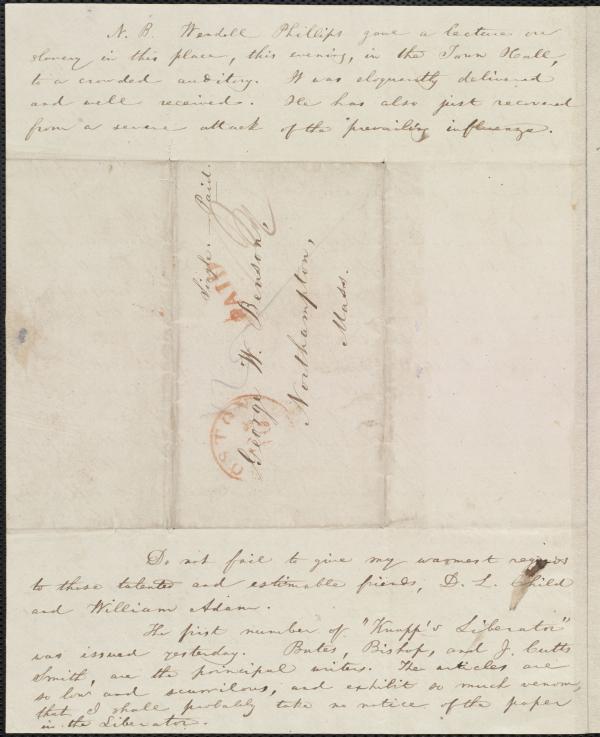 N. B. Wendell Phillips gave a lecture on
slavery in this place, this evening, in the Town Hall,
to a crowded auditory. It was eloquently delivered
and well received. He has also just recovered
from a severe attack of the prevailing influenza.
Single. Paid.
PAID
George W. Benson,
Northampton,
Mass.
Do not fail to give my warmest regards
to those talented and estimable friends, D. L. Child
and William Adam.
The first number of "Knapp's Liberator"
was issued yesterday. Bates, Bishop, and J. Cutts
Smith, are the principal writers. The articles are
so low and scurrilous, and exhibit so much venom,
that I shall probably take no notice of the paper
in the Liberator.